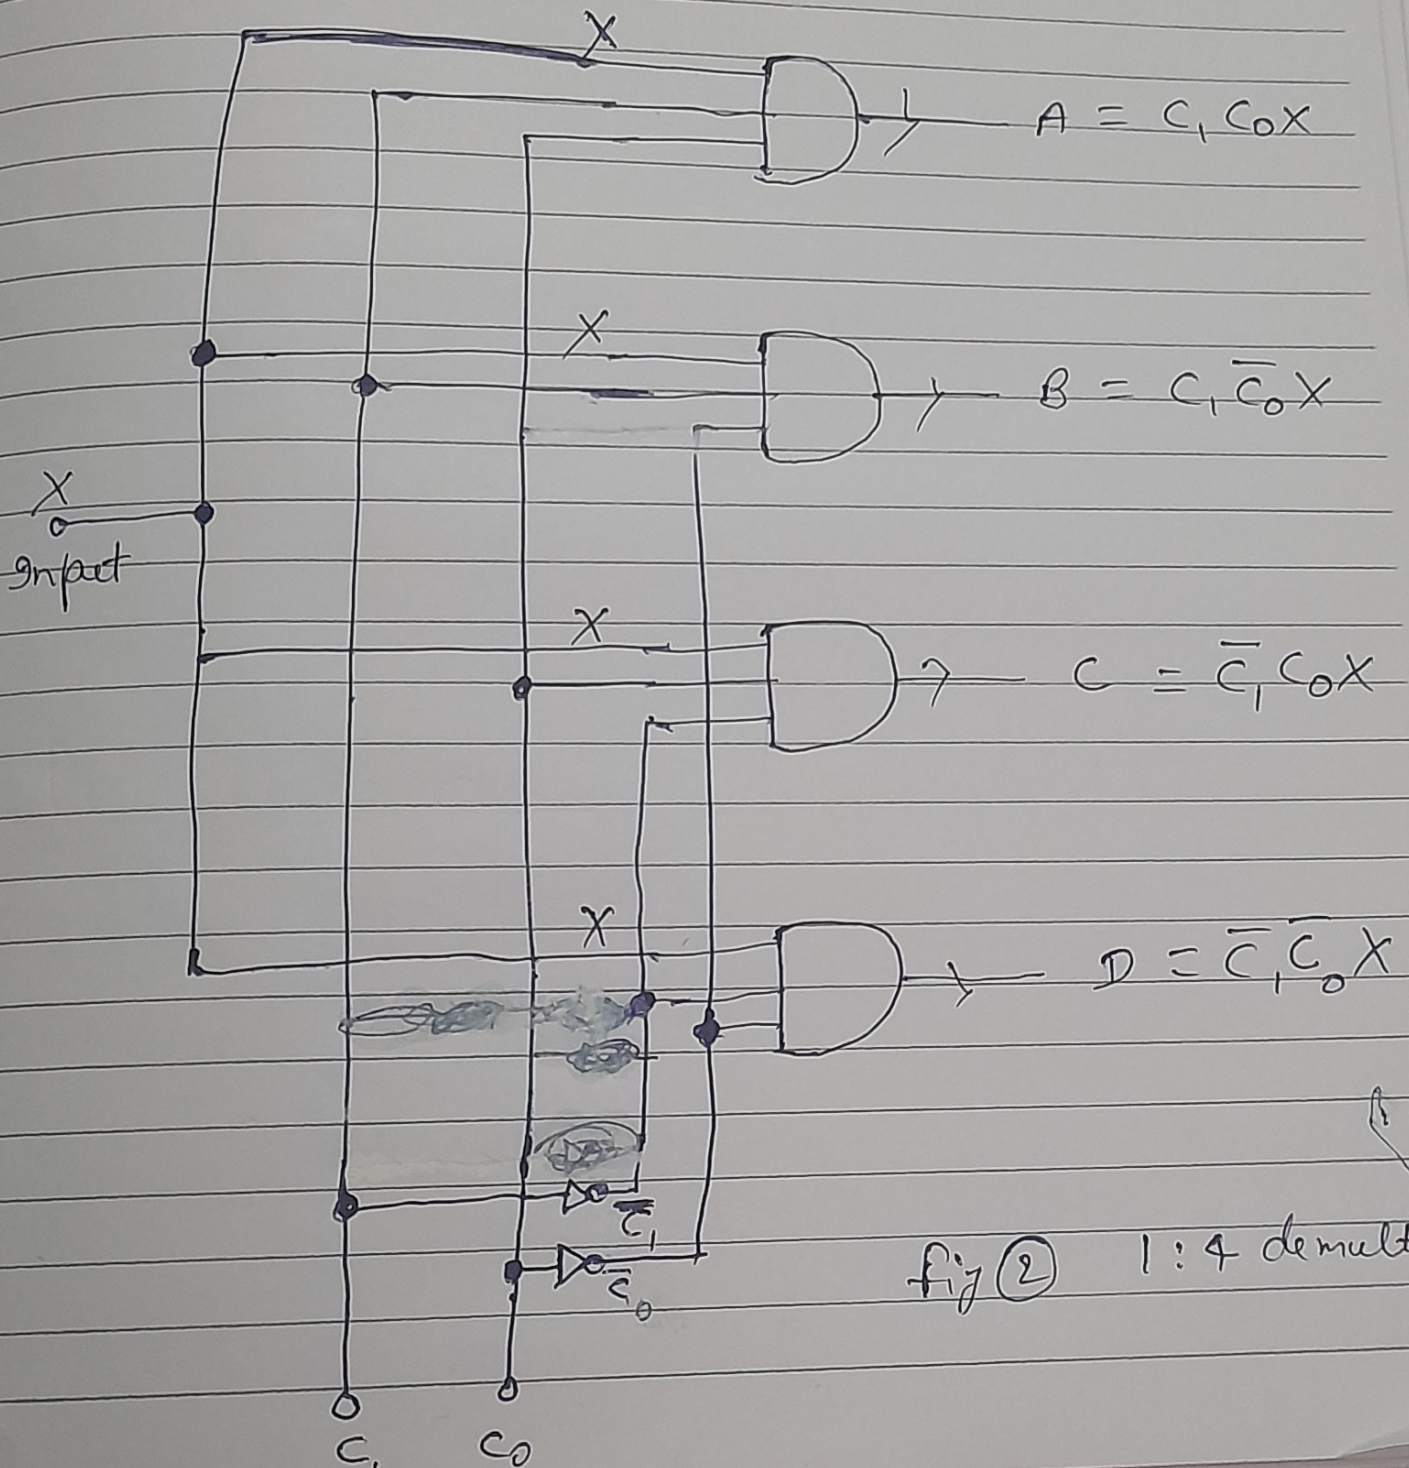 X
A = C₁ C₀ X
X
B = C₁ C̅₀ X
X
Input
X
C = C̅₁ C₀ X
X
D = C̅₁ C̅₀ X
C̅₁
C̅₀
fig ② 1:4 demult
C₁ C₀